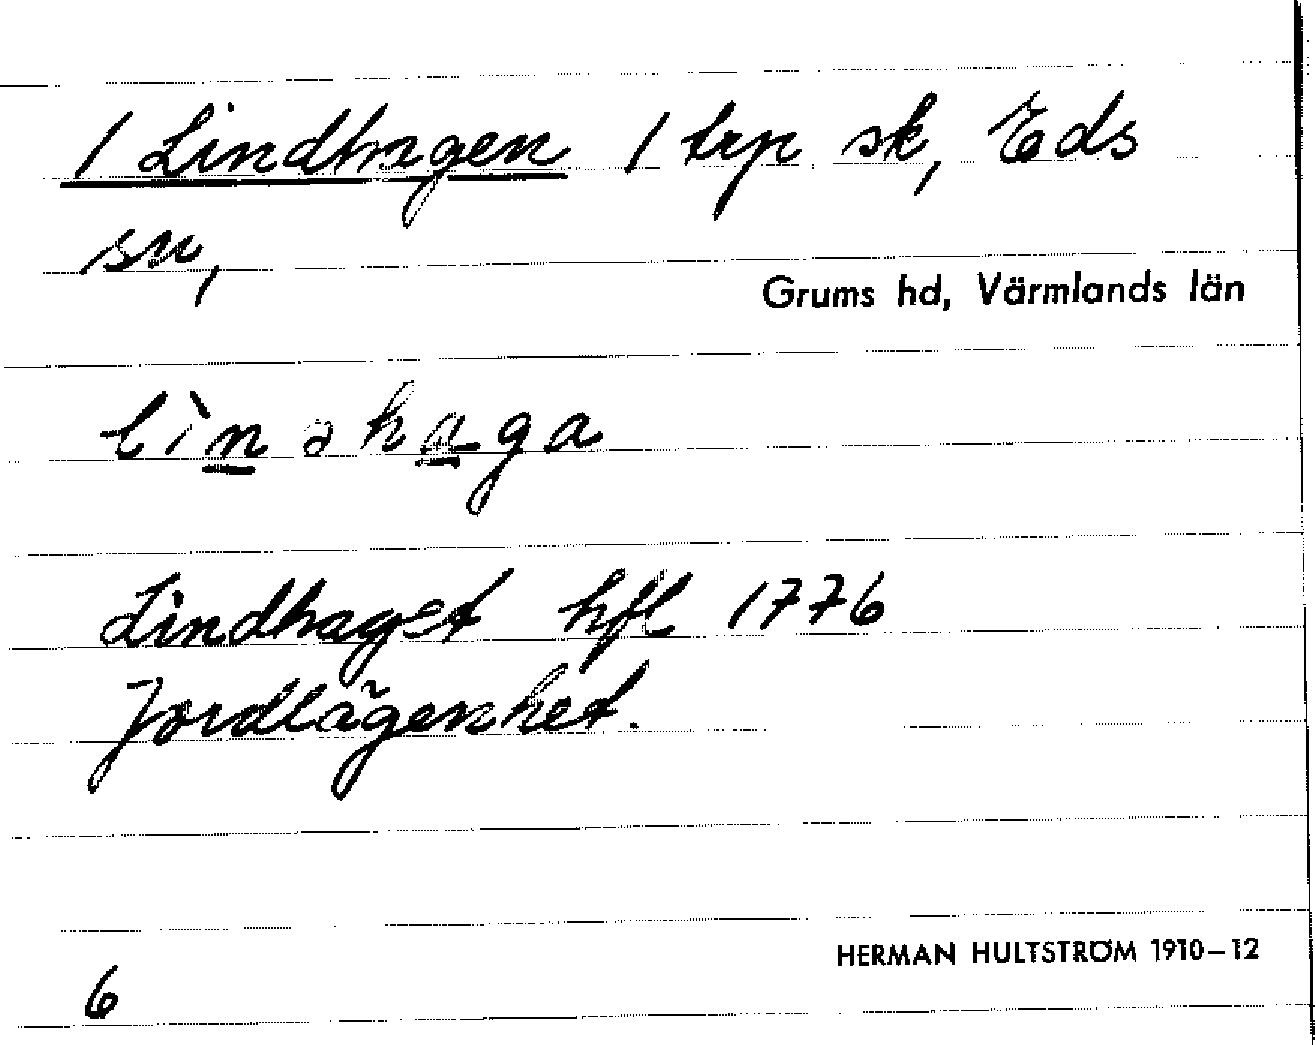 / Lindhagen / trp sk, Eds
sn,
Grums hd, Värmlands län
lìnəhaga
Lindhaget hfl 1776
Jordlägenhet.
HERMAN HULTSTRÖM 1910–12
6